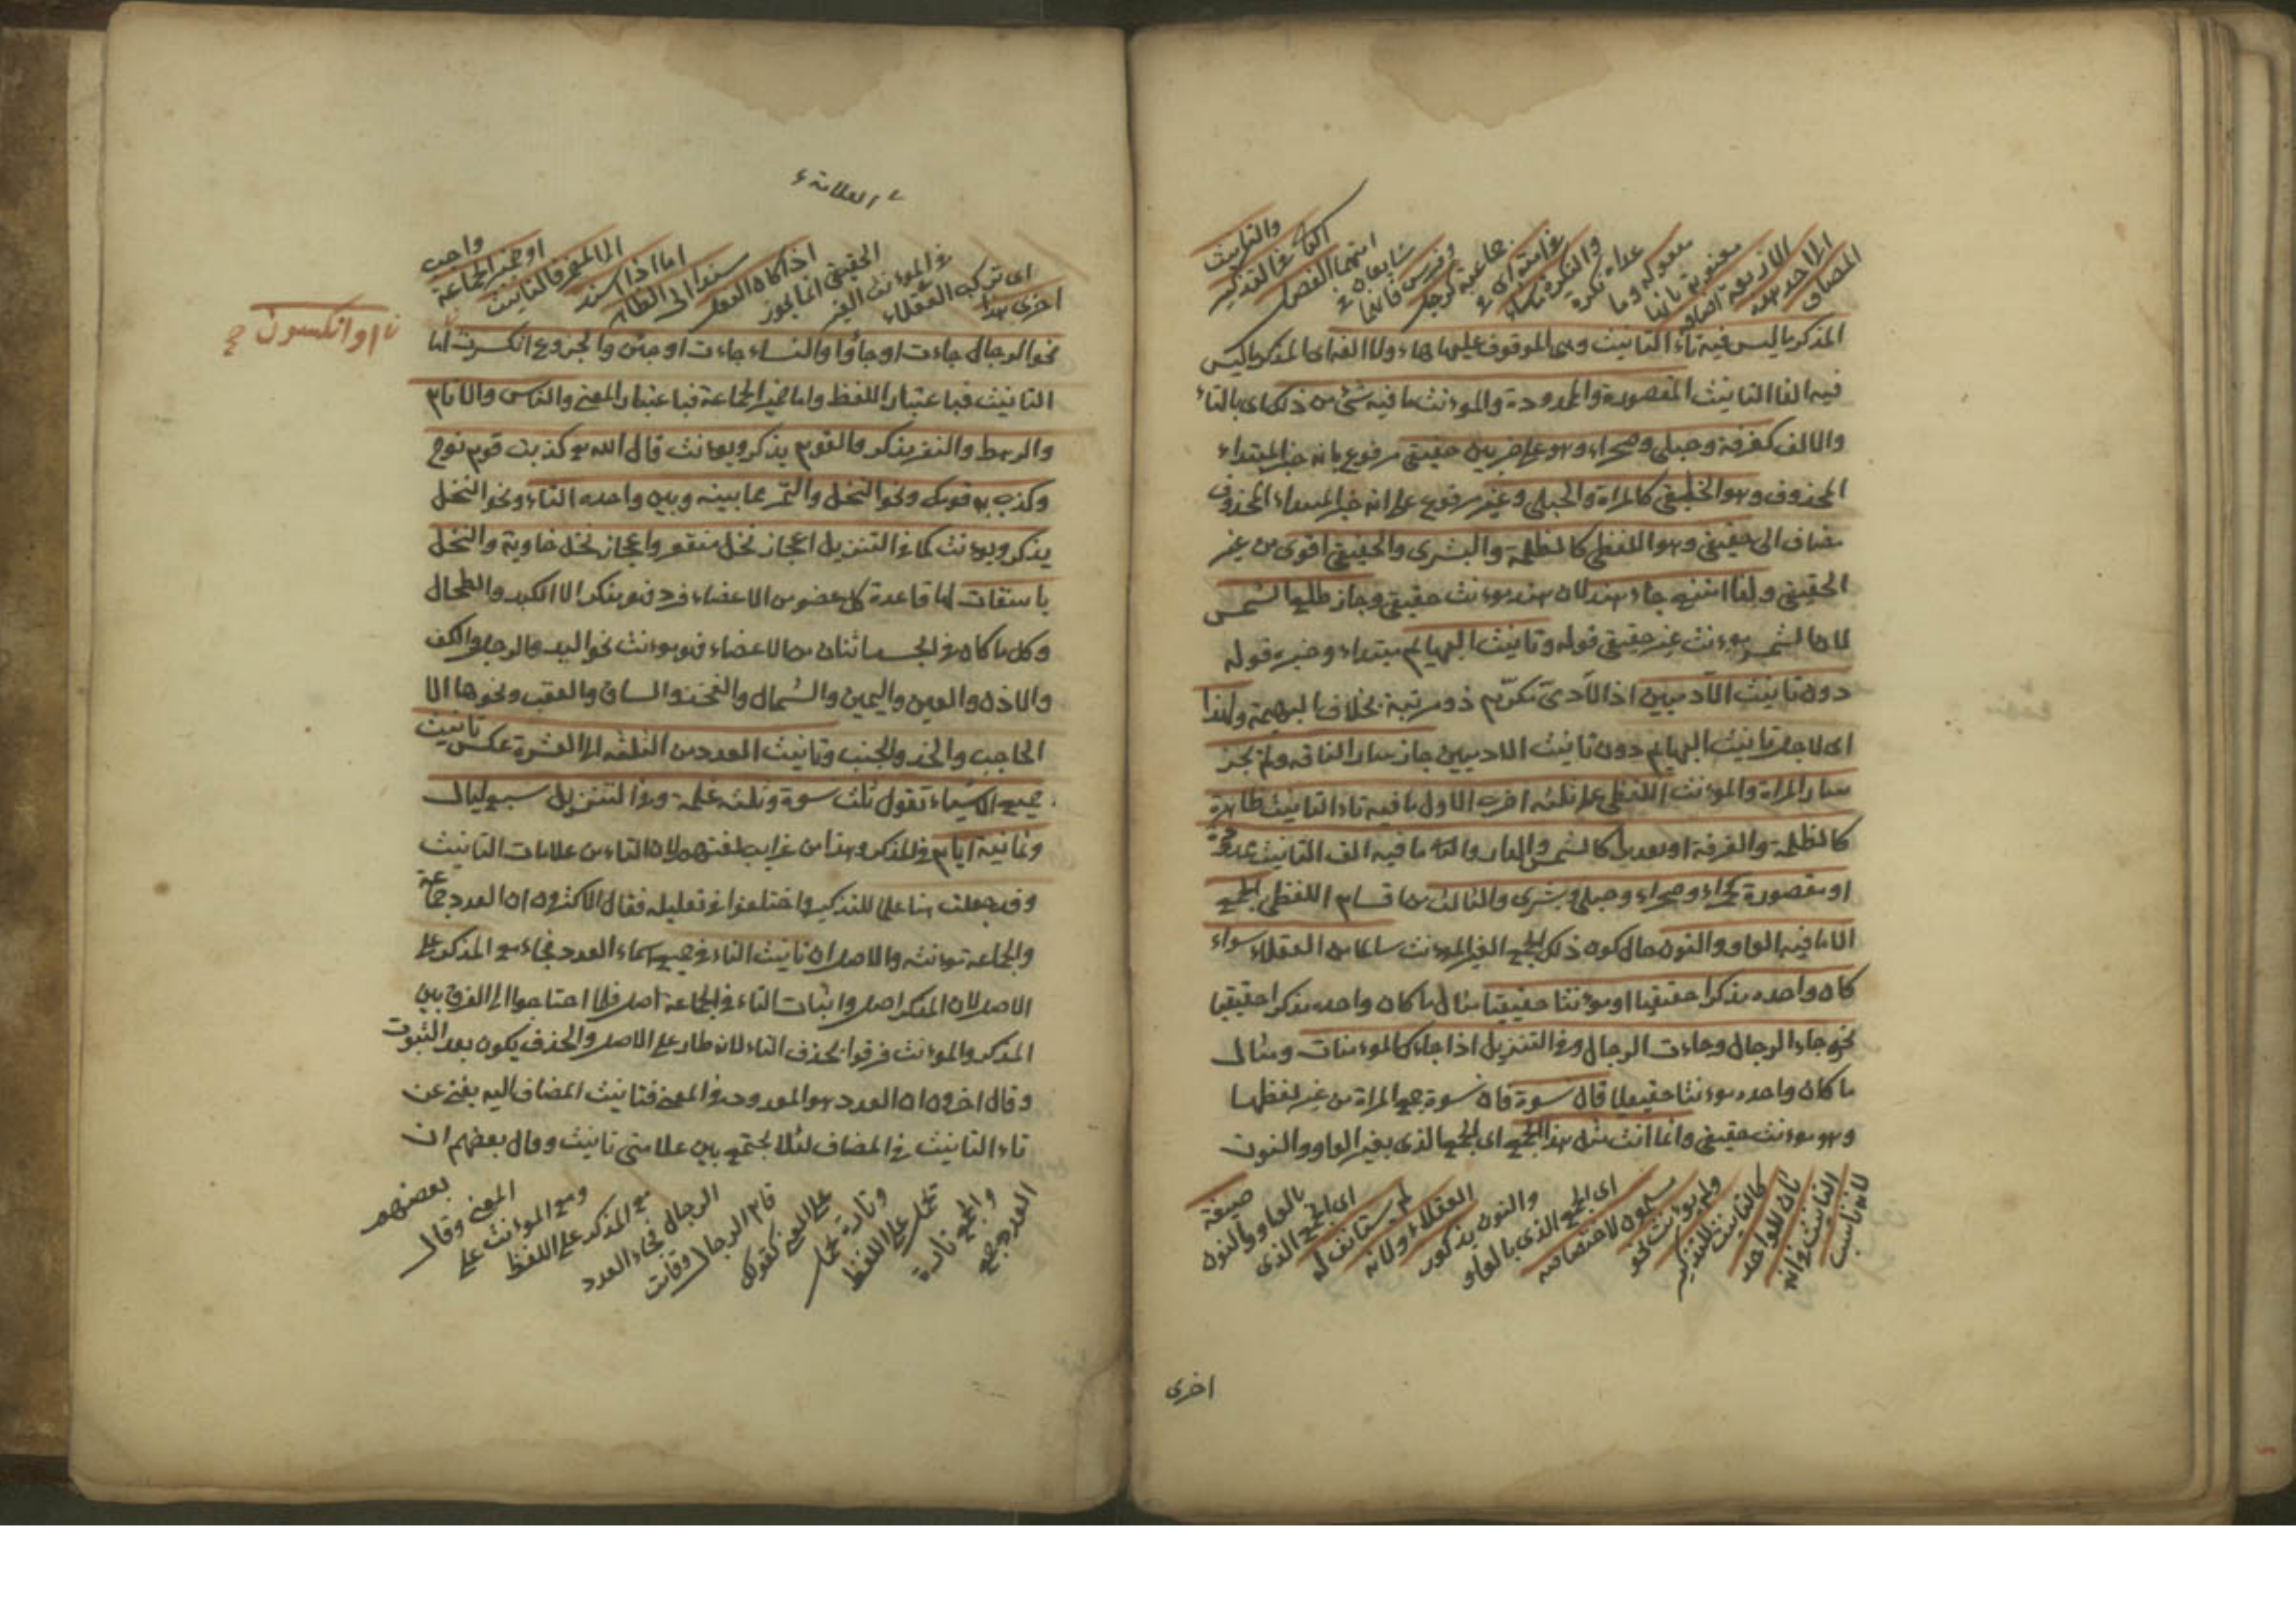 المضاف
الى احد هذه
الاربعة اضافة
معنوية ثانيا
معموله وما
عداه نكرة
والنكرة ما شاع
في امته اى في
جماعته كرجل
وفرس فانهما
شايعان في
امتهما الفصل
الثاني في التذكير
والتانيث
المذكر ما ليس فيه تاء التانيث وهى الموقوف عليها هاء ولا الف اى المذكر ما ليس
فيه الفا التانيث المقصورة والممدودة والموءنث ما فيه شئ من ذلك اى بالتاء
والالف كغرفة وحبلى وصحراء وهو على ضربين حقيقى مرفوع بانه خبر المبتداء
المحذوف وهو الخلقى كالمراة والحبلى وغير مرفوع على انه خبر المبتداء المحذوف
مضاف الى حقيقى وهو اللفظى كالظلمة والبشرى والحقيقى اقوى من غير
الحقيقى ولذا امتنع جاء هند لان هند موءنث حقيقى وجاز طلع الشمس
لان الشمس موءنث غير حقيقى قوله وتانيث البهايم مبتداء وخبره قوله
دون تانيث الآدميين اذ الآدمى مكرّم ذو مرتبة بخلاف البهيمة ولهذا
اى لاجل تانيث البهايم دون تانيث الادميين جاز سار الناقة ولم يجز
سار المراة والموءنث اللفظى على ثلثه اضرب الاول ما فيه تاء التانيث ظاهرة
كالظلمة والغرفة او مقدرة كالشمس والدار والثانى ما فيه الف التانيث ممدودة
او مقصورة كحمراء وصحراء وحبلى وبشرى والثالث من اقسام اللفظى الجمع
الا ما فيه الواو والنون حال كون ذلك الجمع الغير الموءنث سالما من العقلاء سواء
كان واحده مذكرا حقيقيا او موءنثا حقيقيا مثال ما كان واحده مذكرا حقيقيا
نحو جاء الرجال وجاءت الرجال وفي التنزيل اذا جاءك الموءمنات ومثال
ما كان واحده موءنثا حقيقيا قال نسوة فان نسوة جمع المراة من غير لفظها
وهو موءنث حقيقى وانما انث مثل هذا الجمع اى الجمع الذى بغير الواو والنون
لان تانيث
التانيث وانه
ثان للواحد
كالتانيث للتذكير
ولم يوءنث نحو
مسلمون لاختصاصه
اى الجمع الذى بالواو
والنون بذكور
العقلاء ولانه
لم يستانف له
اى الجمع الذى
بالواو والنون
صيغة
اخرى
العلامة
اخرى هذا
اى تركب العقلاء
في الموءنث الغير
الحقيقى انما يجوز
اذا كان الفعل
مسندا الى الظاهر
اما اذا اسند
الى المضمر فالتانيث
او ضمير الجماعة
واجب
نحو الرجال جاءت او جاؤا والنساء جاءت او جئن والجذوع انكسرت اما
او انكسرن
التانيث فباعتبار اللفظ واما ضمير الجماعة فباعتبار المعنى والناس والانام
والرهط والنفر يذكر والقوم يذكر ويوءنث قال الله تع كذبت قوم نوح
وكذب به قومك ونحو النخل والتمر مما بينه وبين واحده التاء ونحو النخل
يذكر ويوءنث كما في التنزيل اعجاز نخل منقعر واعجاز نخل خاوية والنخل
باسقات اما قاعدة كل عضو من الاعضاء فرد فهو يذكر الا الكبد والطحال
وكل ما كان في الجسد اثنان من الاعضاء فهو يوءنث نحو اليد والرجل والكف
والاذن والعين واليمين والشمال والفخذ والساق والعقب ونحوها الا
الحاجب والخد والجنب وتانيث العدد من الثلثة الى العشرة عكس تانيث
جميع الاشياء تقول ثلث نسوة وثلثه غلمة وفي التنزيل سبع ليال
وثمانية ايام في المذكر وهذا من غرايب لغتهم لان التاء من علامات التانيث
وقد جعلت هنا علما للتذكير واختلفوا في تعليله فقال الاكثرون ان العدد جماعة
والجماعة موءنثه والاصل ان تانيث التاء في جميع اسماء العدد فجاء مع المذكر على
الاصل لان المذكر اصل واثبات التاء في الجماعة اصل فلما احتاجوا الى الفرق بين
المذكر والموءنث فرقوا بحذف التاء لانه طار على الاصل والحذف يكون بعد الثبوت
وقال اخرون ان العدد هو المعدود في المعنى فتانيث المضاف اليه يغنى عن
تاء التانيث في المضاف لئلا يجتمع بين علامتى تانيث وقال بعضهم ان
العدد جمع
والجمع تارة
تحمل على اللفظ
وتارة تحمل
على المعنى كقولك
قام الرجال وقامت
الرجال فجاء العدد
مع المذكر على اللفظ
ومع الموءنث على
المعنى وقال
بعضهم